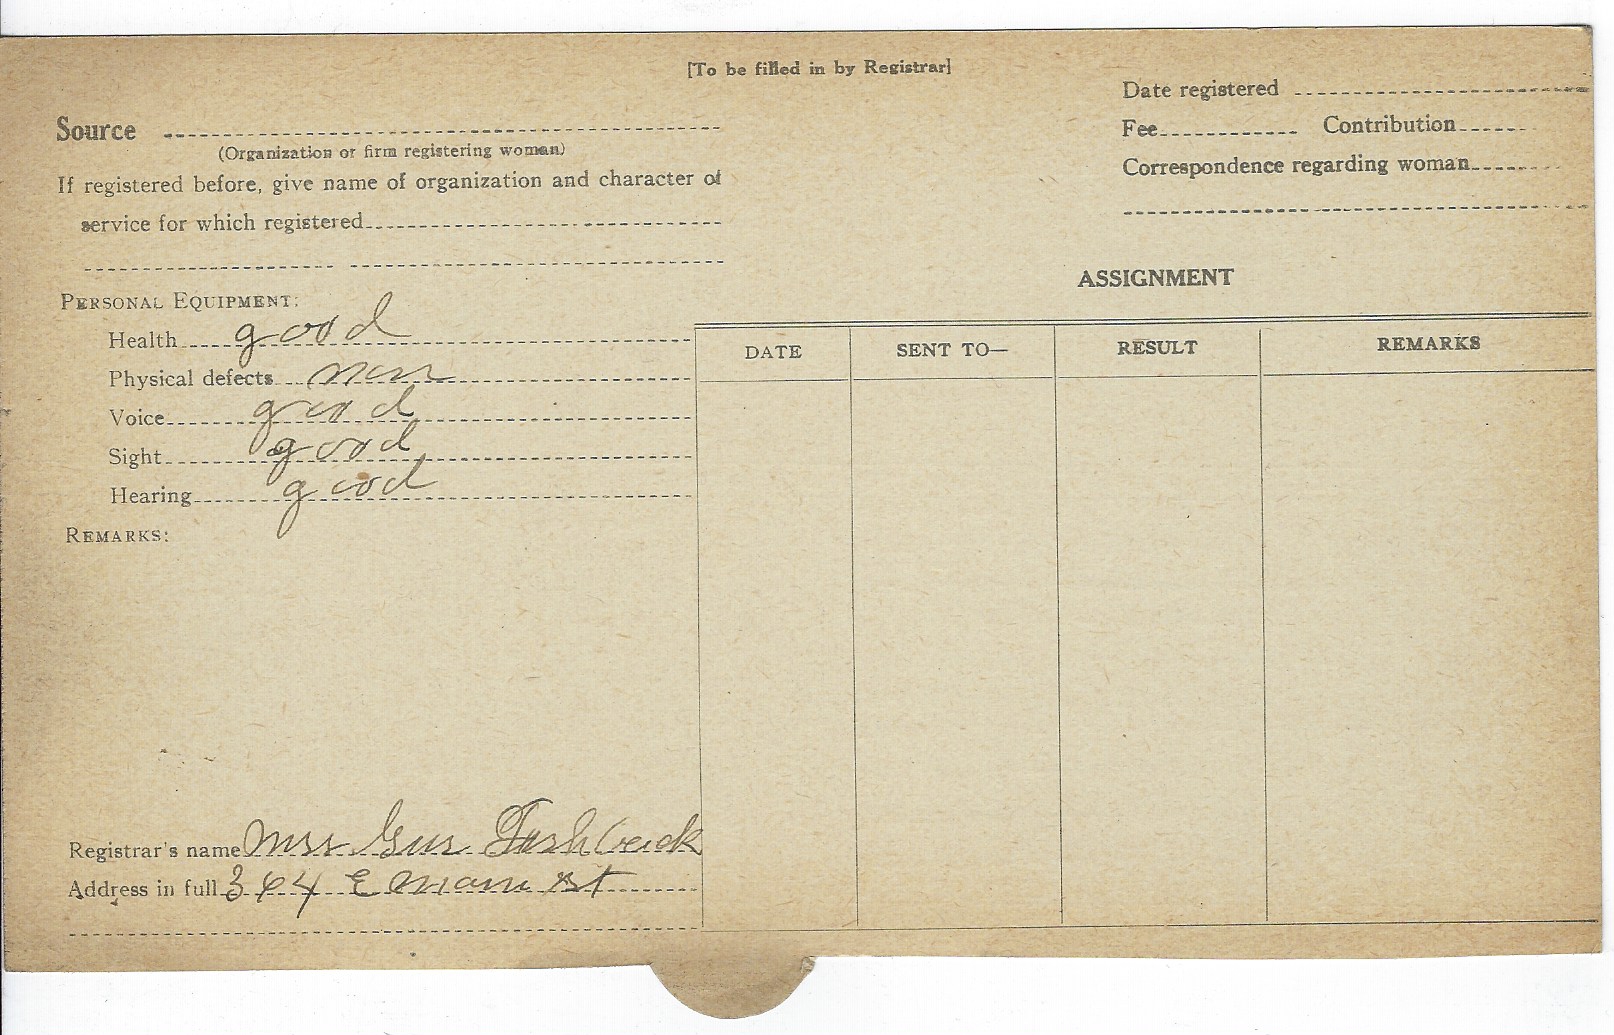 [To be filled in by Registrar]
Date registered
Source
Fee Contribution
(Organization or firm registering woman)
Correspondence regarding woman
If registered before, give name of organization and character of
service for which registered
ASSIGNMENT
PERSONAL EQUIPMENT:
Health good
DATE SENT TO— RESULT REMARKS
Physical defects
Voice good
Sight good
Hearing good
REMARKS:
Registrar's name Mrs Gus
Address in full 364 E Main St